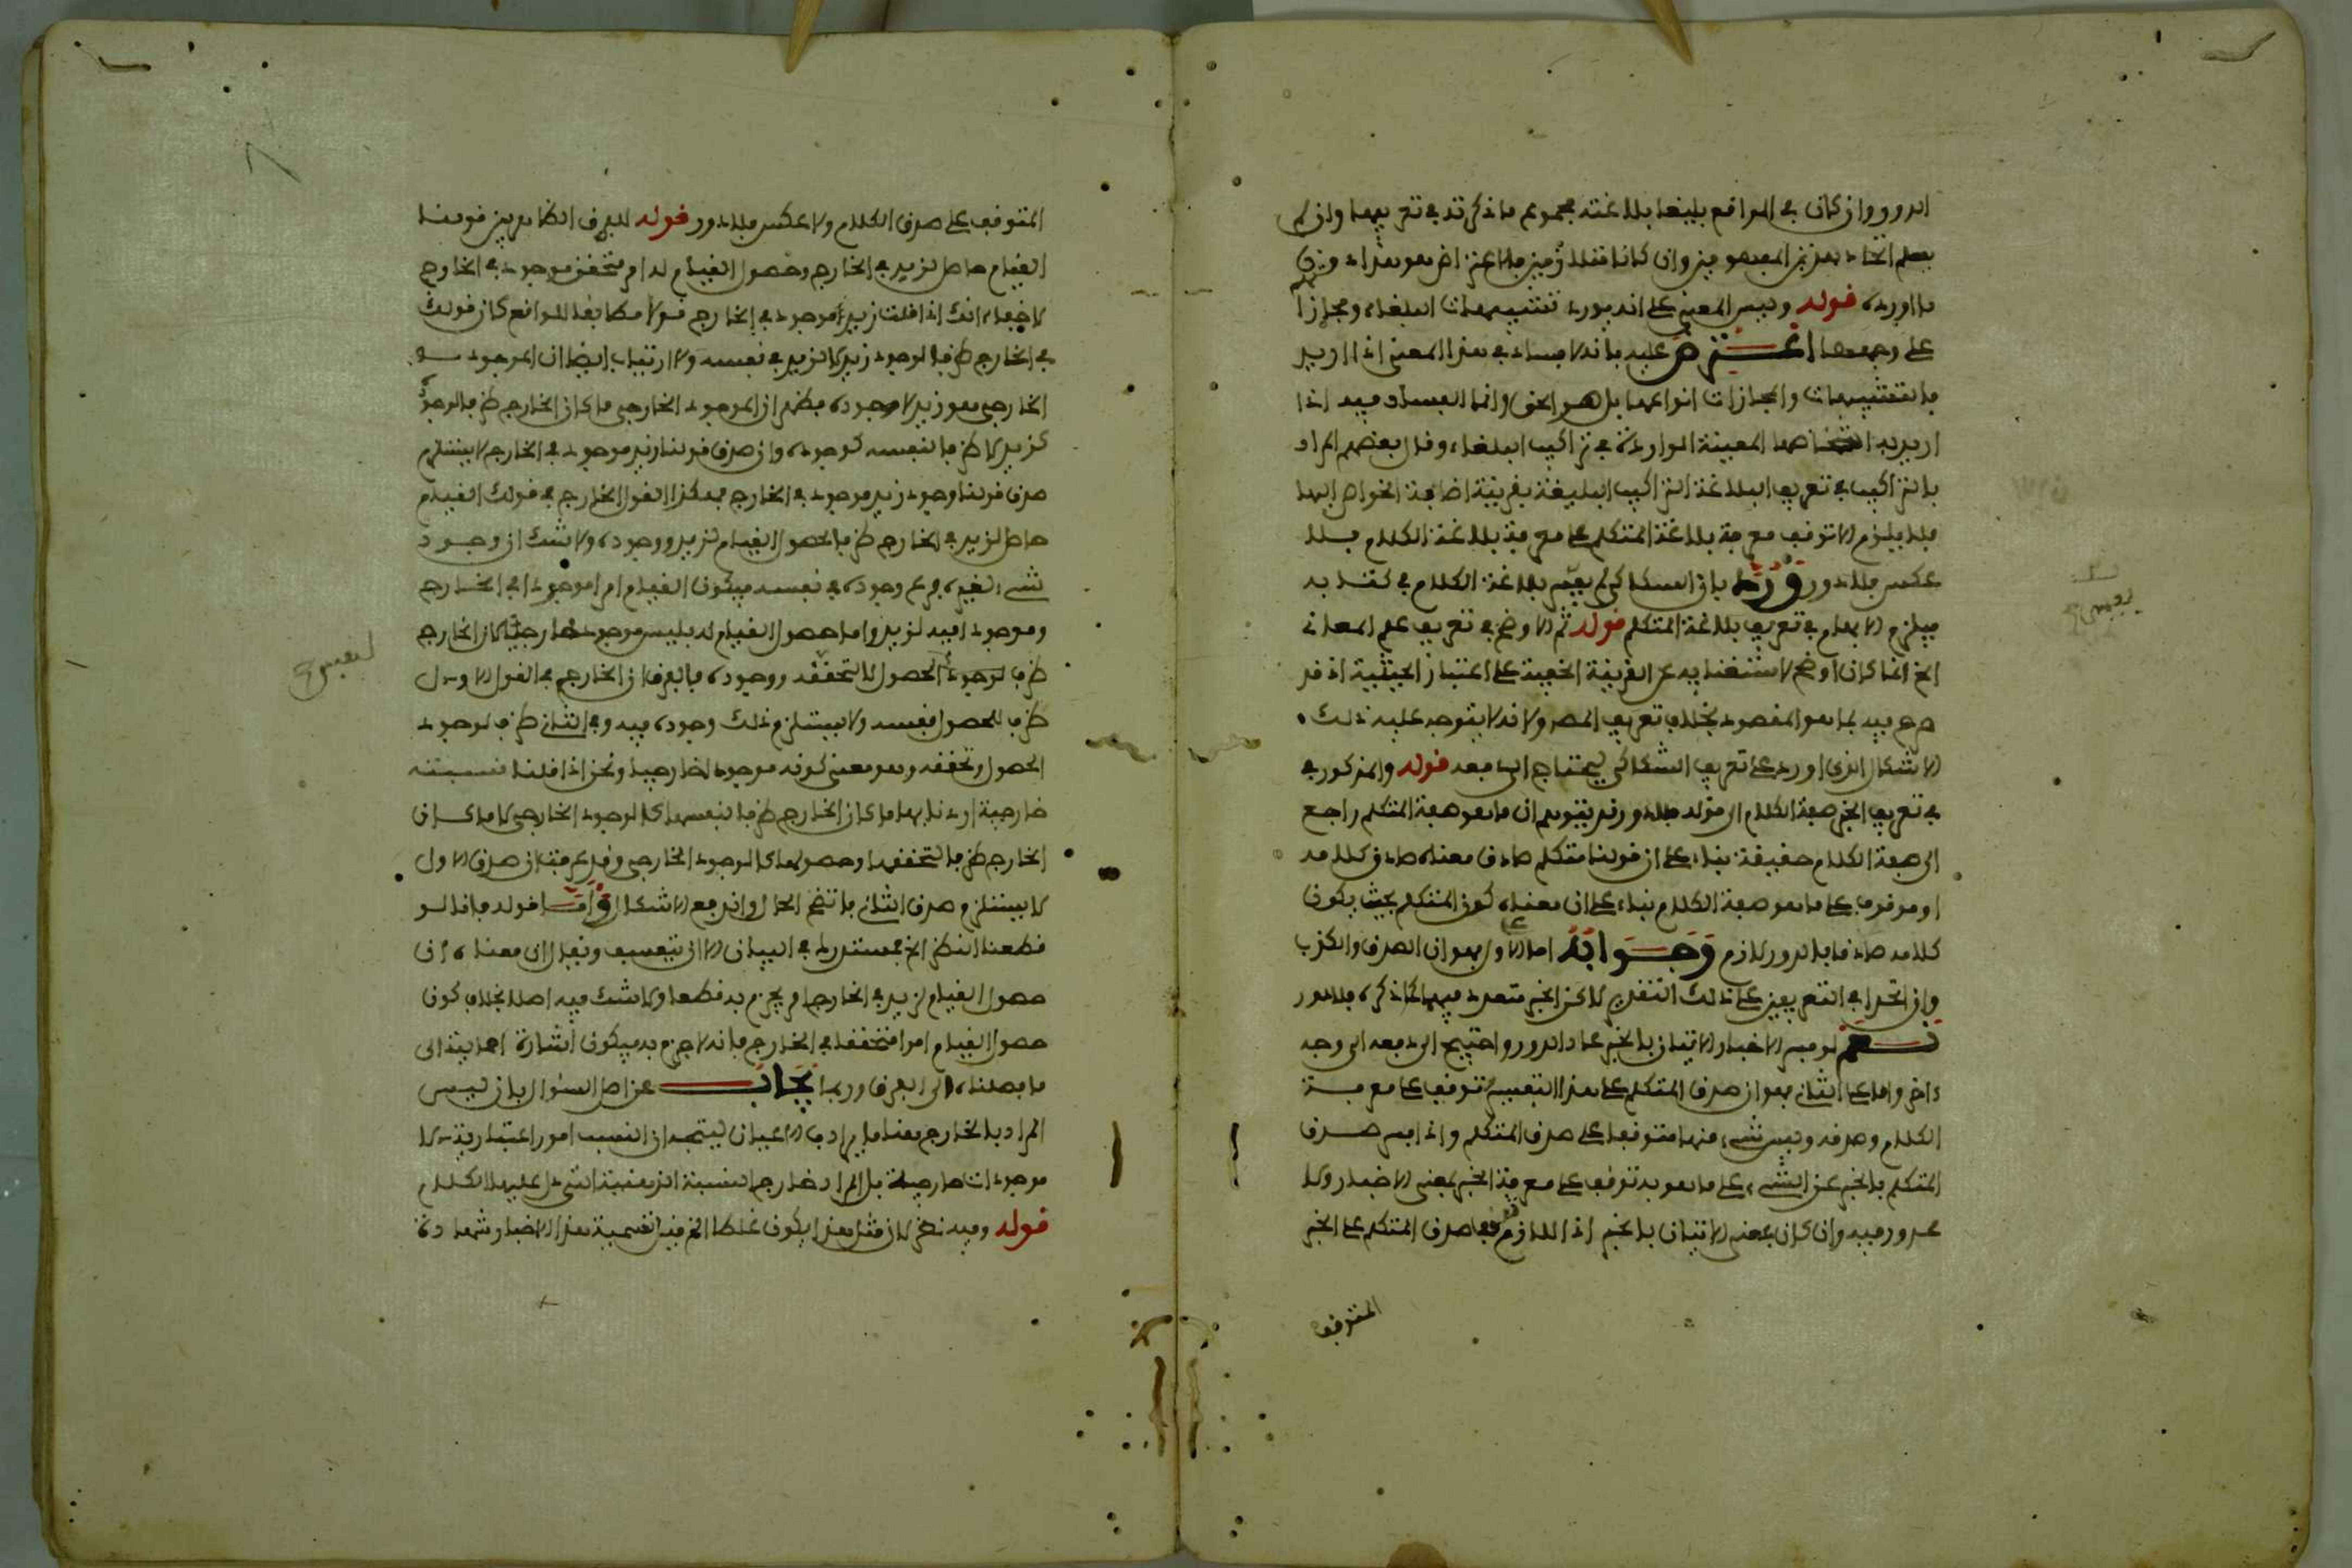 الدور وان كان في الواقع بليغا بلاغته مجموع ما ذكرته في تعريفها وان لم
يعلم اتحاد هذين المفهومين وان كانا متلازمين بلا عن اخر هو هذا
ما اورده قوله وليس المعنى على انه يورد تشبيهات البلغاء ومجازا
على وجهها اعترض عليه بانه لا فساد في هذا المعنى اذا اريد
بالتشبيهات والمجازات انواعها بل هو الحق وانما الفساد فيه اذا
اريد به اشخاصها المعينة الواردة في تراكيب البلغاء وقال بعضهم المراد
بالتراكيب في تعريف البلاغة التراكيب البليغة بقرينة اضافة الخواص اليها
فلا يلزم الا توقف معرفة بلاغة المتكلم على معرفة بلاغة الكلام بلا
عكس فلا دور ورد بان السكاكي لم يفسر بلاغة الكلام في كتابه
فيلزم الابهام في تعريف بلاغة المتكلم قوله ثم الاوضح في تعريف علم المعاني
الخ انما كان اوضح لاستغنايه عن القرينة الخفية على اعتبار الحيثية اذ قد
صرح فيه بما هو المقصود بخلاف تعريف المص ولانه لا يتوجه عليه ذلك
الاشكال الذي اورد على تعريف السكاكي ليحتاج الى دفعه قوله والمذكور في
في تعريف الخبر صفة الكلام الى قوله فلا دور قد يتوهم ان ما هو صفة المتكلم راجع
الى صفة الكلام حقيقة بناء على ان قولنا متكلم صادق معناه صادق كلامه
او موقوف على ما هو صفة الكلام بناء على ان معناه كون المتكلم بحيث يكون
كلامه صادقا فالدور لازم وجوابه اما على الاول فهو ان الصدق والكذب
وان اتحدا في التعريفين على ذلك التقدير لاكن الخبر متعدد فيهما كما ذكره فلا دور
نعم لو فسر الاخبار بالاتيان بالخبر عاد الدور واحتيج الى دفعه الى وجه
ءاخر واما على الثاني فهو ان صدق المتكلم على هذا التفسير توقف على معرفة
الكلام وصدقه وليس شيء منهما متوقفا على صدق المتكلم واذا فسر صدق
المتكلم بالخبر عن الشيء على ما هو به توقف على معرفة الخبر بمعنى الاخبار ولا
محذور فيه وان كان بمعنى الاتيان بالخبر اذ اللازم توقف صدق المتكلم على الخبر
المتوقف
المتوقف على صدق الكلام ولا عكس فلا دور قوله للفرق الظاهر بين قولنا
القيام حاصل لزيد في الخارج وحصول القيام له امر متحقق موجود في الخارج
لا خفاء انك اذا قلت زيد موجود في الخارج قولا مطابقا للواقع كان قولك
في الخارج ظرفا لوجود زيد لا لزيد في نفسه ولا ارتياب ايضا ان الموجود
الخارجي هو زيد لا وجوده فظهر ان الموجود الخارجي ما كان الخارج ظرفا لوجوده
كزيد لا ظرفا لنفسه كوجوده وان صدق قولنا زيد موجود في الخارج لا يستلزم
صدق قولنا وجود زيد موجود في الخارج فهكذا القول الخارج في قولك القيام
حاصل لزيد في الخارج ظرف لحصول القيام لزيد ووجوده ولا شك ان وجود
شيء لغيره فرع وجوده في نفسه فيكون القيام امرا موجودا في الخارج
وموجودا فيه لزيد واما حصول القيام له فليس موجودا خارجيا كان الخارج
ظرف لوجود الحصول لا لتحققه ووجوده فالفرق ان الخارج في القول الاول
ظرف للحصول نفسه ولا يستلزم ذلك وجوده فيه وفي الثاني ظرف لوجود
الحصول وتحققه وهو معنى كونه موجودا خارجيا ونحن اذا قلنا نسبته
خارجية اردنا بها ما كان الخارج ظرفا لنفسها كالوجود الخارجي لا ما كان
الخارج ظرفا لتحققها وحصولها كالموجود الخارجي وقد عرفت ان صدق الاول
لا يستلزم صدق الثاني فاتضح الحال واندفع الاشكال واما قوله فانا لو
قطعنا النظر الخ فمستدرك في البيان الا ان يتعسف ويقال ان معناه ان
حصول القيام لزيد في الخارج امر يجزم به قطعا ولا شك فيه اصلا بخلاف كون
حصول القيام امرا متحققا في الخارج فانه لا جزم به فيكون اشارة اجمالية الى
ما فصلناه الى الفرق وربما يجاب عن اصل السؤال بان ليس
المراد بالخارج هنا ما يرادف الاعيان ليتجه ان النسب امور اعتبارية لا
موجودات خارجية بل المراد خارج النسبة الذهنية التي دل عليها الكلام
قوله وفيه نظر لان مثل هذا يكون غلطا الخ قيل تسمية هذا الاخبار شهادة